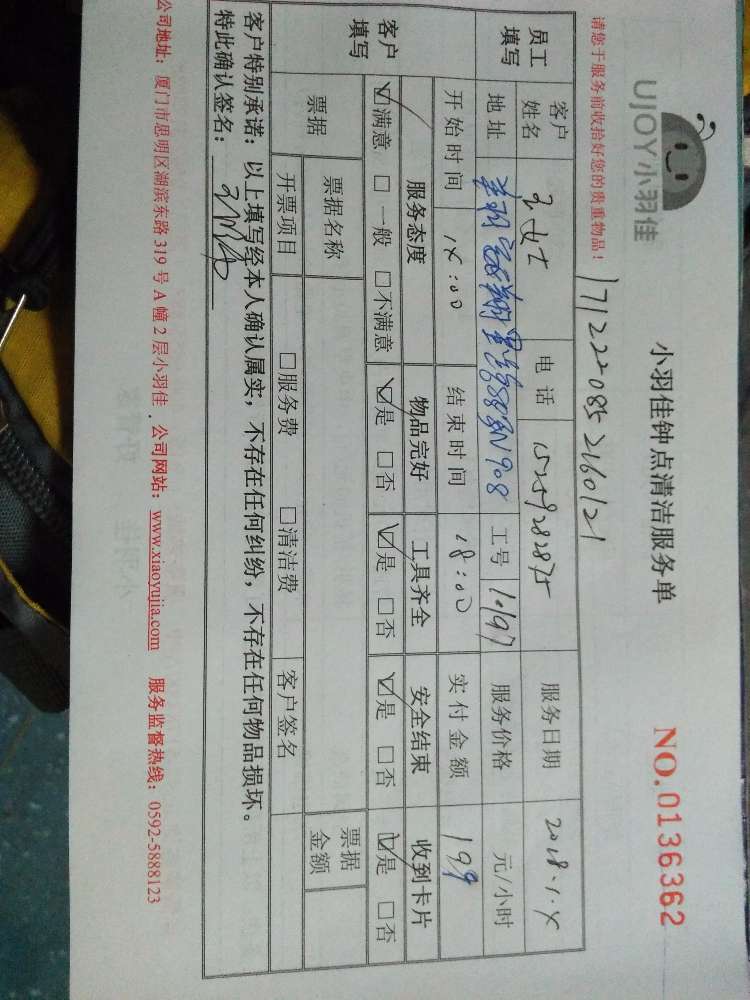 UJOY小羽佳
小羽佳钟点清洁服务单
NO.0136362
请您于服务前收拾好您的贵重物品！
171222085 2160121
员工填写 客户姓名 王女士 电话 15259282875 服务日期 2018.1.4
地址 908 工号 10197 服务价格 元/小时
开始时间 14:00 结束时间 18:00 实付金额 199
客户填写 服务态度 物品完好 工具齐全 安全结束 收到卡片
☑满意 □一般 □不满意 ☑是 □否 ☑是 □否 ☑是 □否 ☑是 □否
票据 票据名称 票据金额
开票项目 □服务费 □清洁费 客户签名
客户特别承诺：以上填写经本人确认属实，不存在任何纠纷，不存在任何物品损坏。
特此确认签名：
公司地址：厦门市思明区湖滨东路319号A幢2层小羽佳．公司网站：www.xiaoyujia.com 服务监督热线：0592-5888123